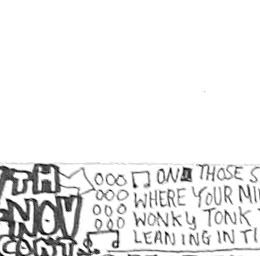 TH
NOV
CONT
ON THOSE S
WHERE YOUR MI
WONKY TONK
LEANING IN TI